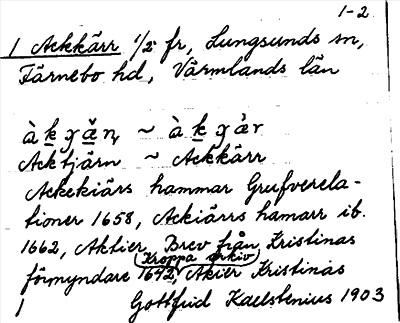 1-2
1 Ackkärr 1/2 fr, Lungsunds sn,
Färnebo hd, Värmlands län
àk̲gæ̲̆ņ ~ àk̲gȧr
Acktjärn ~ Ackkärr
Ackekiärs hammar Grufverela-
tioner 1658, Ackiärrs hamarr ib.
1662, Aktier, Brev från Kristinas
(Kroppa arkiv)
förmyndare 1642, Akier Kristinas
1 Gottfrid Kallstenius 1903